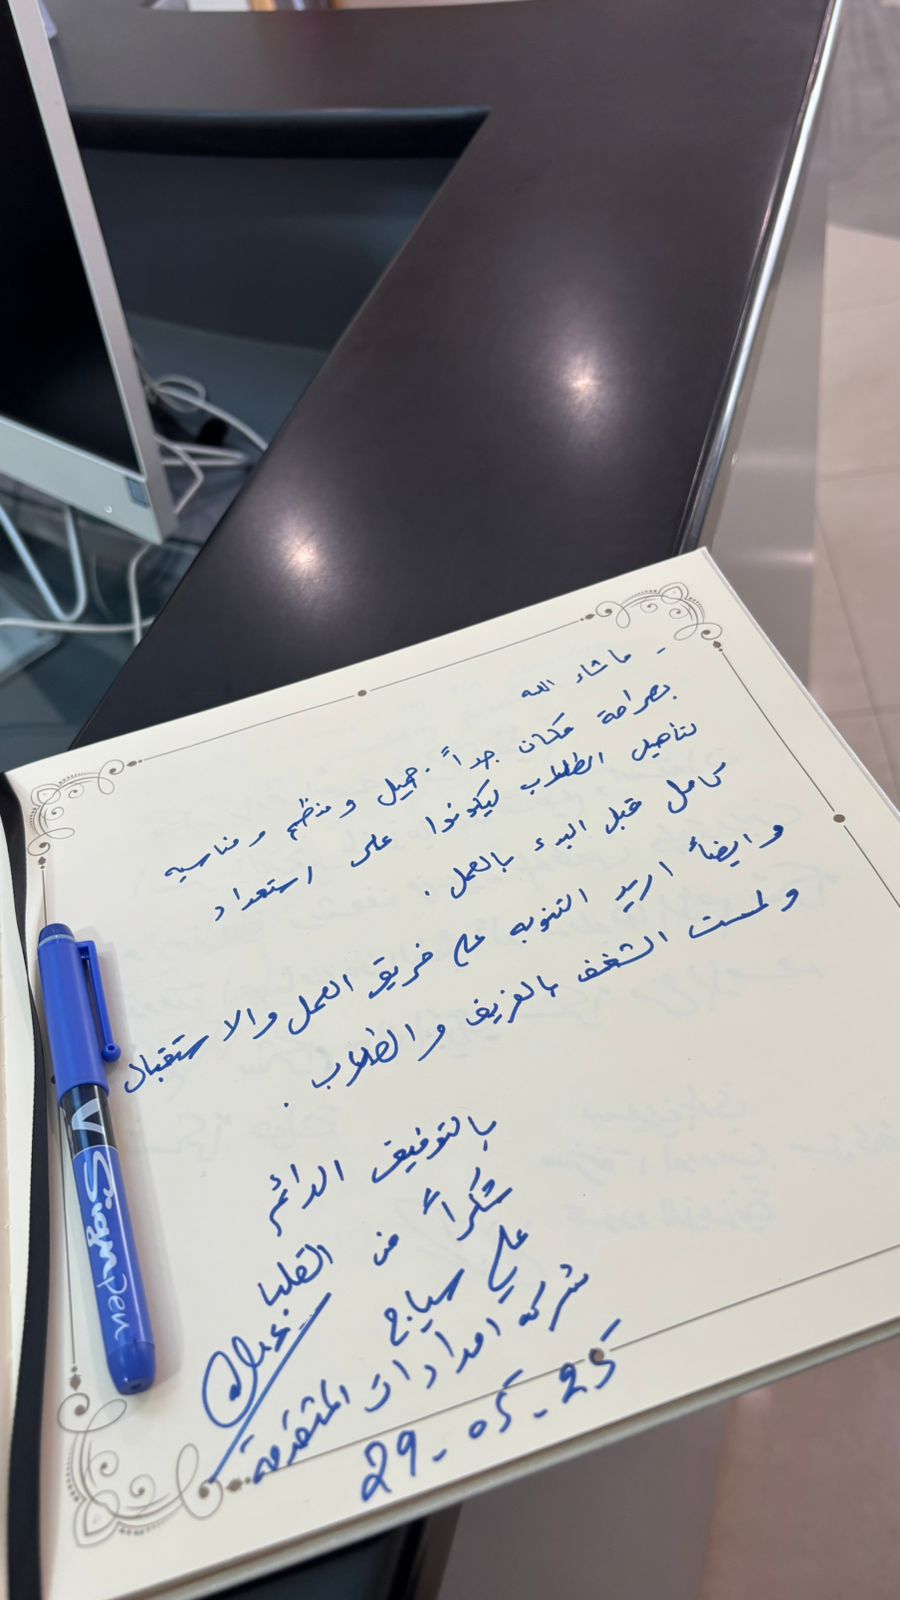 - ما شاء الله
بصراحة مكان جداً جميل ومنظم ومناسبه
لتأهيل الطلاب ليكونوا على استعداد
كامل قبل البدء بالعمل.
وايضاً اريد التنويه على فريق العمل والاستقبال
ولمست الشغف بالفريق والطلاب.
بالتوفيق الدائم
شكراً من القلب
علي سياج
شركة امدادات المتقدمة
29-05-25
V Sign Pen